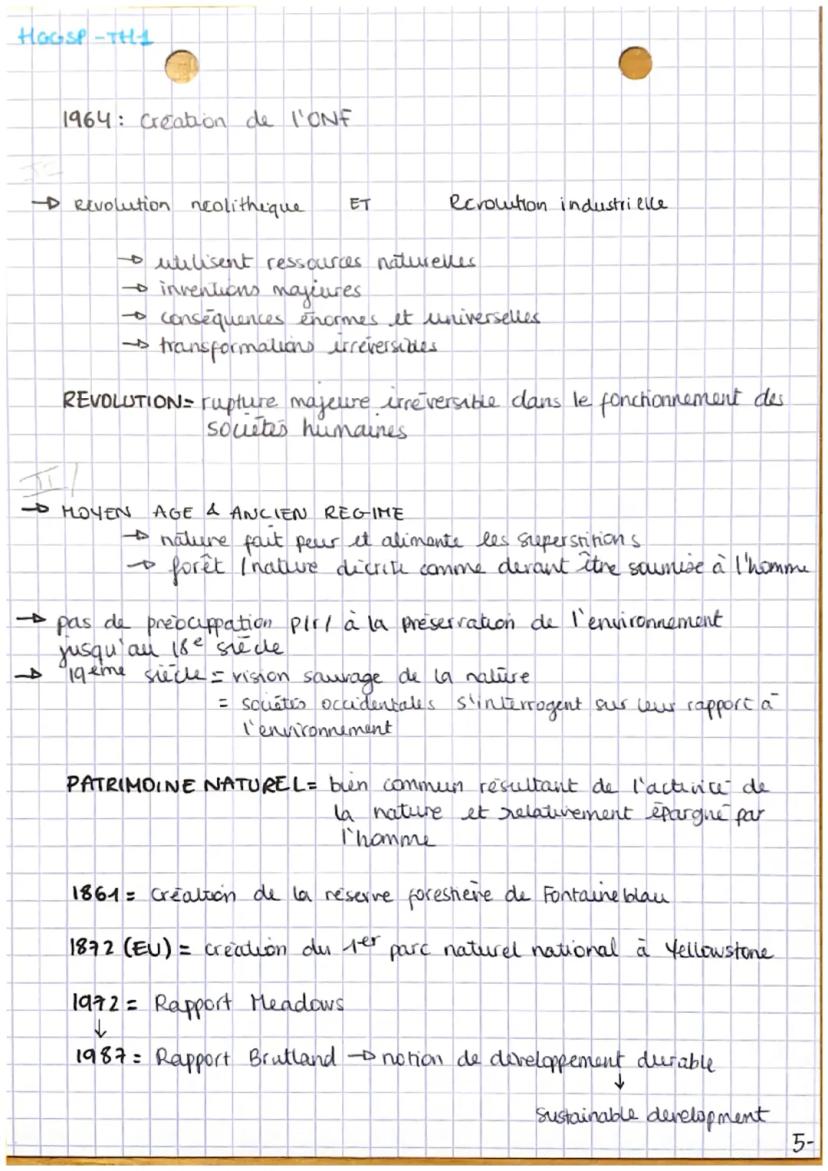 HGGSP - TH1
1964 : création de l'ONF
I/
→ Révolution néolithique ET Révolution industrielle
→ utilisent ressources naturelles
→ inventions majeures
→ conséquences énormes et universelles
→ transformations irréversibles
REVOLUTION = rupture majeure irréversible dans le fonctionnement des
sociétés humaines
II/
→ MOYEN AGE & ANCIEN REGIME
→ nature fait peur et alimente les superstitions
→ forêt / nature décrite comme devant être soumise à l'homme
→ pas de préoccupation p/r/ à la préservation de l'environnement
jusqu'au 18e siècle
→ 19ème siècle = vision sauvage de la nature
= sociétés occidentales s'interrogent sur leur rapport à
l'environnement
PATRIMOINE NATUREL = bien commun résultant de l'activité de
la nature et relativement épargné par
l'homme
1861 = création de la réserve forestière de Fontainebleau
1872 (EU) = création du 1er parc naturel national à Yellowstone
1972 = Rapport Meadows
↓
1987 = Rapport Brutland → notion de développement durable
↓
sustainable development
5-